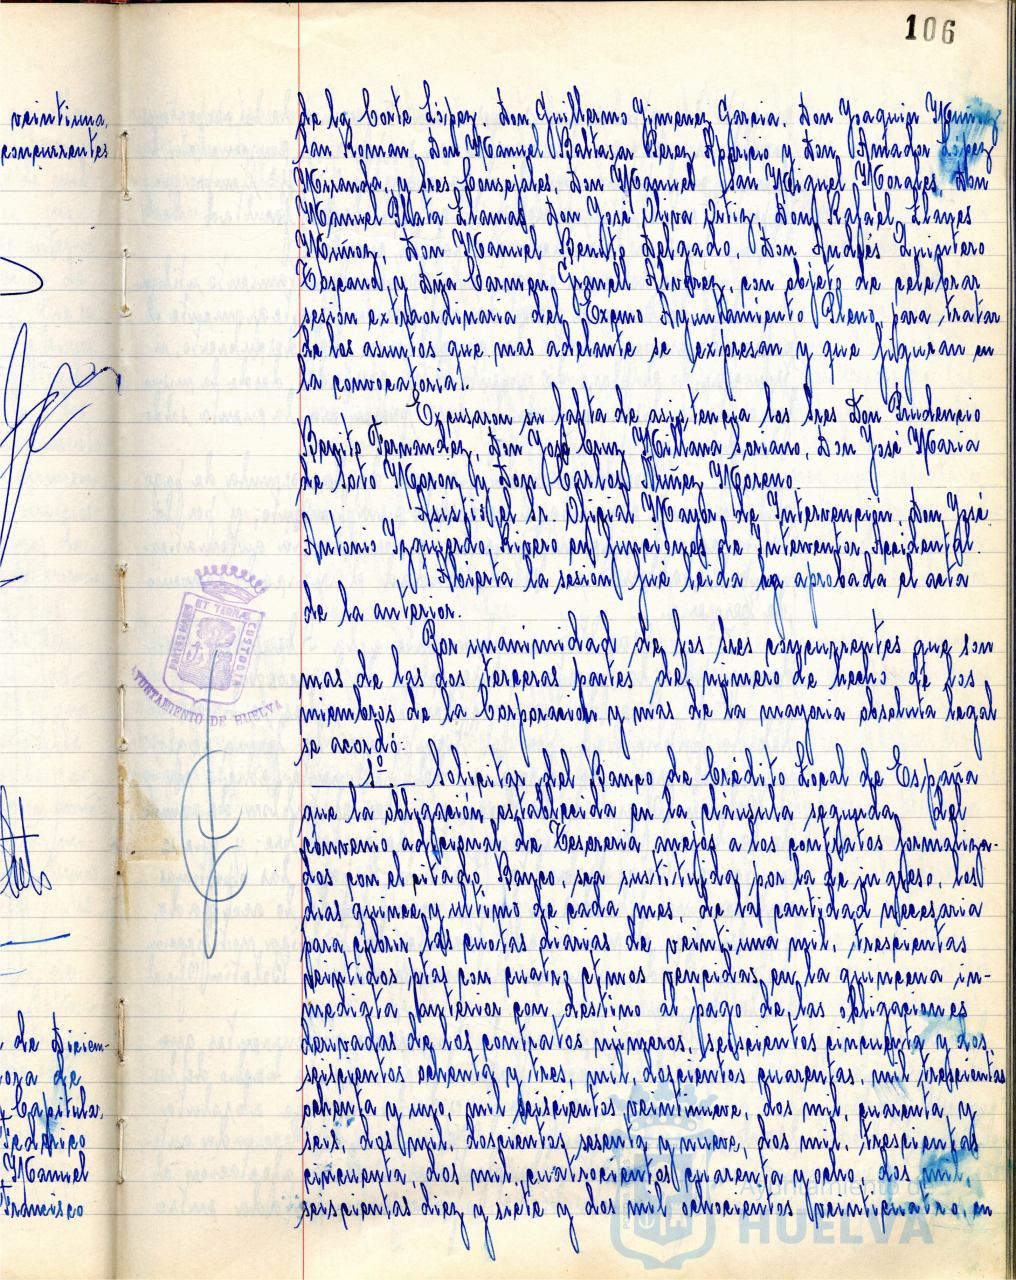 106
veintiuna,
concurrentes
de la Corte López, Don Guillermo Jimenez Garcia, Don Joaquin Muñoz
San Roman, Don Manuel Baltasar Perez Aparicio y Don Amador Lopez
Miranda, y Sres Concejales, Don Manuel San Miguel Morales, Don
Manuel Plata Llamas, Don José Oliva Ortiz, Don Rafael Llanes
Muñoz, Don Manuel Benito Delgado, Don Andrés Quintero
Toscano, y Dña Carmen Granell Alvarez, con objeto de celebrar
sesión extraordinaria del Excmo Ayuntamiento Pleno para tratar
de los asuntos que mas adelante se expresan y que figuran en
la convocatoria.
Excusaron su falta de asistencia los Sres Don Prudencio
Benito Fernandez, Don José Cruz Millana Soriano, Don José Maria
de Soto Moron y Don Carlos Núñez Moreno.
Asistió el Sr. Oficial Mayor de Intervención, Don José
Antonio Izquierdo Rivero en funciones de Interventor Accidental.
Abierta la sesión, fué leida y aprobada el acta
de la anterior.
Por unanimidad de los Sres concurrentes que son
mas de las dos terceras partes del número de hecho de los
miembros de la Corporación y mas de la mayoria absoluta legal
se acordó:
1º Solicitar del Banco de Crédito Local de España
que la obligación establecida en la cláusula segunda del
convenio adicional de Tesoreria anejos a los contratos formaliza-
dos con el citado Banco, sea sustituida por la de ingreso, los
dias quince y ultimo de cada mes, de la cantidad necesaria
para cubrir las cuotas diarias de veintiuna mil, trescientas
veintidos ptas con cuatro ctmos vencidas en la quincena in-
mediata anterior con destino al pago de las obligaciones
derivadas de los contratos números, seiscientos cincuenta y dos,
seiscientos ochenta y tres, mil doscientos cuarenta, mil trescientos
ochenta y uno, mil seiscientos veintinueve, dos mil cuarenta y
seis, dos mil doscientos sesenta y nueve, dos mil trescientos
cincuenta, dos mil cuatrocientos cuarenta y ocho, dos mil,
seiscientos diez y siete y dos mil ochocientos veinticuatro, en
ET TERRAE CUSTODIA
AYUNTAMIENTO DE HUELVA
de Diciem-
ora de
Capitular,
Federico
Manuel
Francisco
Ayuntamiento de
HUELVA